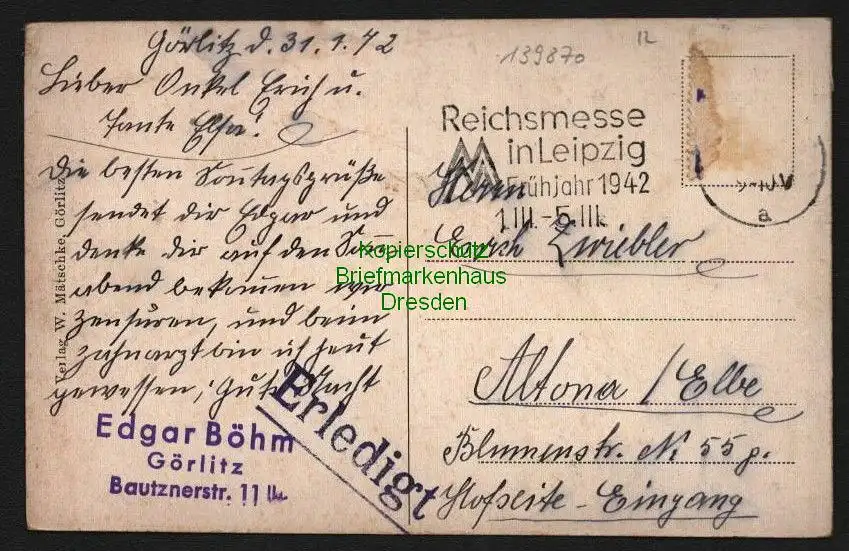 Görlitz d. 31.1.42
Lieber Onkel Erich u.
Tante Elsa!
Die besten Sonntagsgrüße
sendet dir Edgar und
denke dir auf den Sonn
abend bekommen wir
Zensuren, und beim
Zahnarzt bin ich heut
gewessen, Gute Nacht
Edgar Böhm
Görlitz
Bautznerstr. 11
Erledigt
Verlag W. Mätschke, Görlitz
139870
12
Reichsmesse
in Leipzig
Frühjahr 1942
1.III.-5.III.
a
Herrn
Erich Zwiebler
Altona / Elbe
Blumenstr. N 55 p.
Hofseite - Eingang
Kopierschutz
Briefmarkenhaus
Dresden